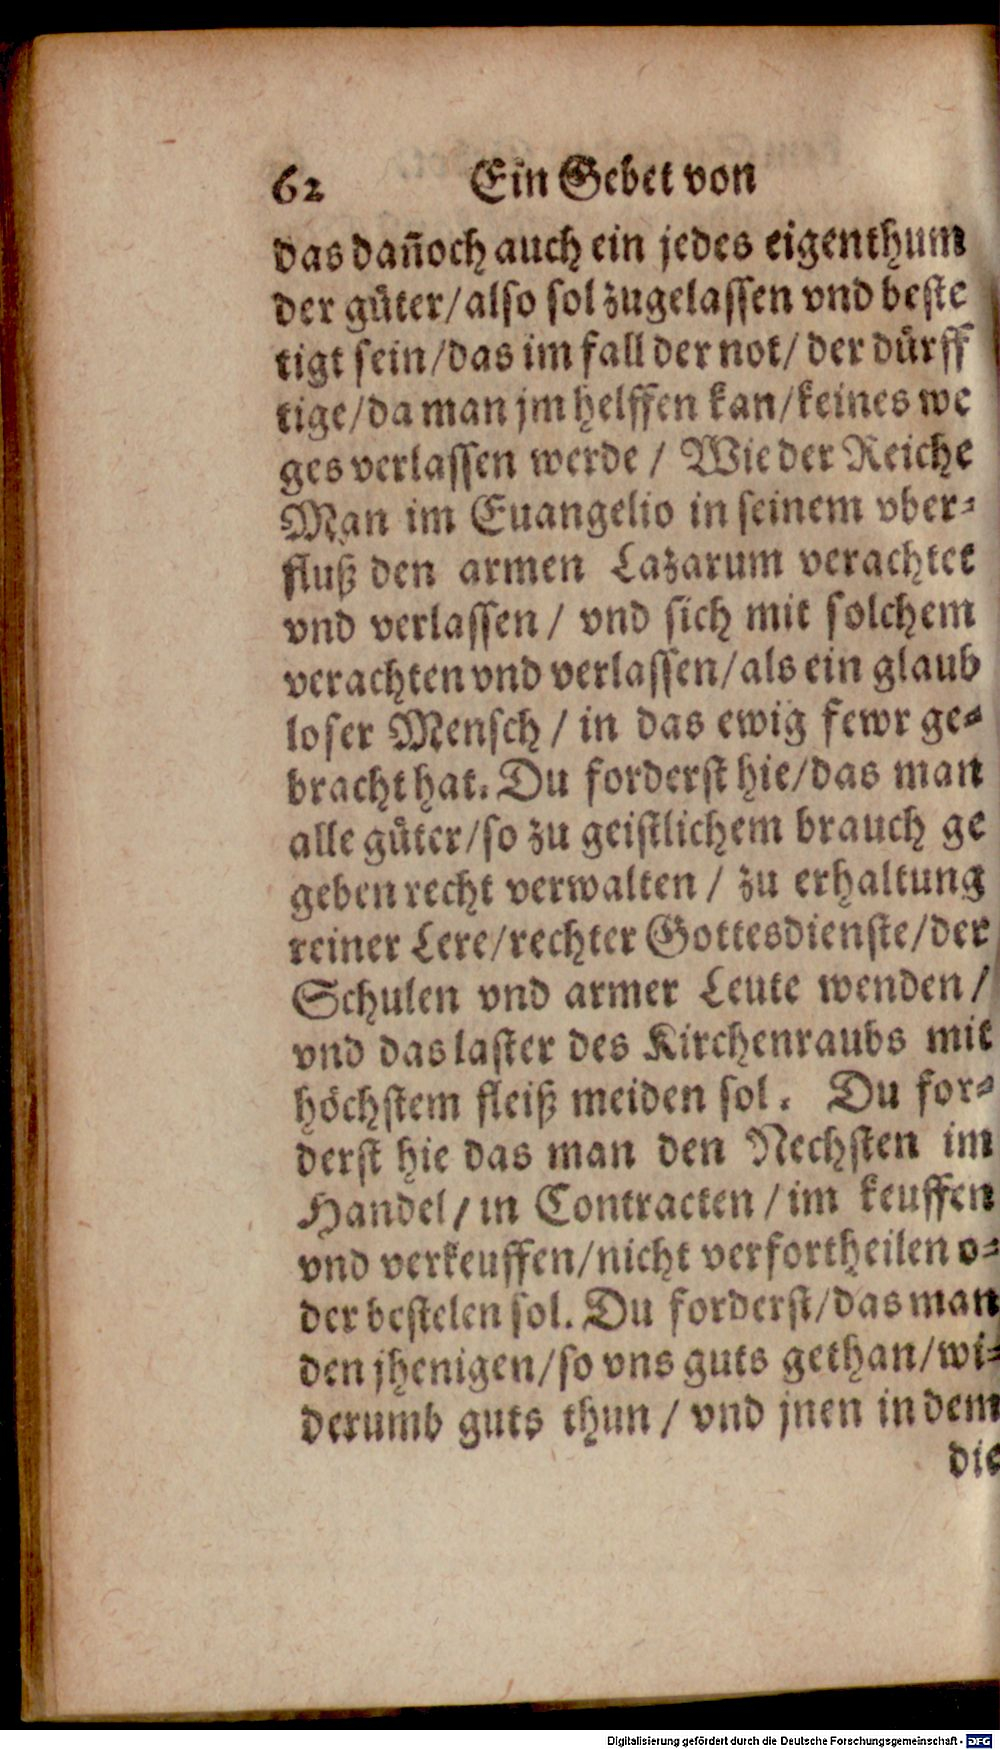 62 Ein Gebet von
das dañoch auch ein jedes eigenthum
der güter/also sol zugelassen vnd beste
tigt sein/das im fall der not/ der dürff
tige/da man jm helffen kan/keines we
ges verlassen werde / Wie der Reiche
Man im Euangelio in seinem vber-
fluß den armen Lazarum verachtet
vnd verlassen / vnd sich mit solchem
verachten vnd verlassen/als ein glaub
loser Mensch / in das ewig fewr ge-
bracht hat. Du forderst hie/das man
alle güter/so zu geistlichem brauch ge
geben recht verwalten / zu erhaltung
reiner Lere/rechter Gottesdienste/der
Schulen vnd armer Leute wenden /
vnd das laster des Kirchenraubs mit
höchstem fleiß meiden sol. Du for-
derst hie das man den Nechsten im
Handel / in Contracten / im keuffen
vnd verkeuffen/nicht verfortheilen o-
der bestelen sol. Du forderst/das man
den jhenigen/so vns guts gethan/wi-
derumb guts thun / vnd jnen in dem
die
Digitalisierung gefördert durch die Deutsche Forschungsgemeinschaft - DFG